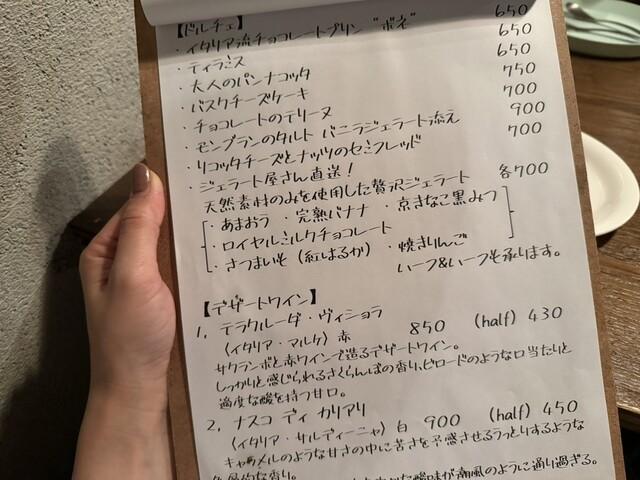 【ドルチェ】
・イタリア流チョコレートプリン "ボネ" 650
・ティラミス 650
・大人のパンナコッタ 650
・バスクチーズケーキ 750
・チョコレートのテリーヌ 700
・モンブランのタルト バニラジェラート添え 900
・リコッタチーズとナッツのセミフレッド 700
・ジェラート屋さん直送！
天然素材のみを使用した贅沢ジェラート 各700
・あまおう ・完熟バナナ ・京きなこ黒みつ
・ロイヤルミルクチョコレート
・さつまいも（紅はるか） ・焼きりんご
ハーフ&ハーフも承ります。
【デザートワイン】
1, テラクルーダ・ヴィショラ
（イタリア・マルケ）赤 850 (half) 430
サクランボと赤ワインで造るデザートワイン。
しっかりと感じられるさくらんぼの香り、ビロードのような口当たりと
適度な酸を持つ甘口。
2, ナスコ ディ カリアリ
（イタリア・サルディーニャ）白 900 (half) 450
キャラメルのような甘さの中に苦さを予感させるうっとりするような
酸味が潮風のように通り過ぎる。